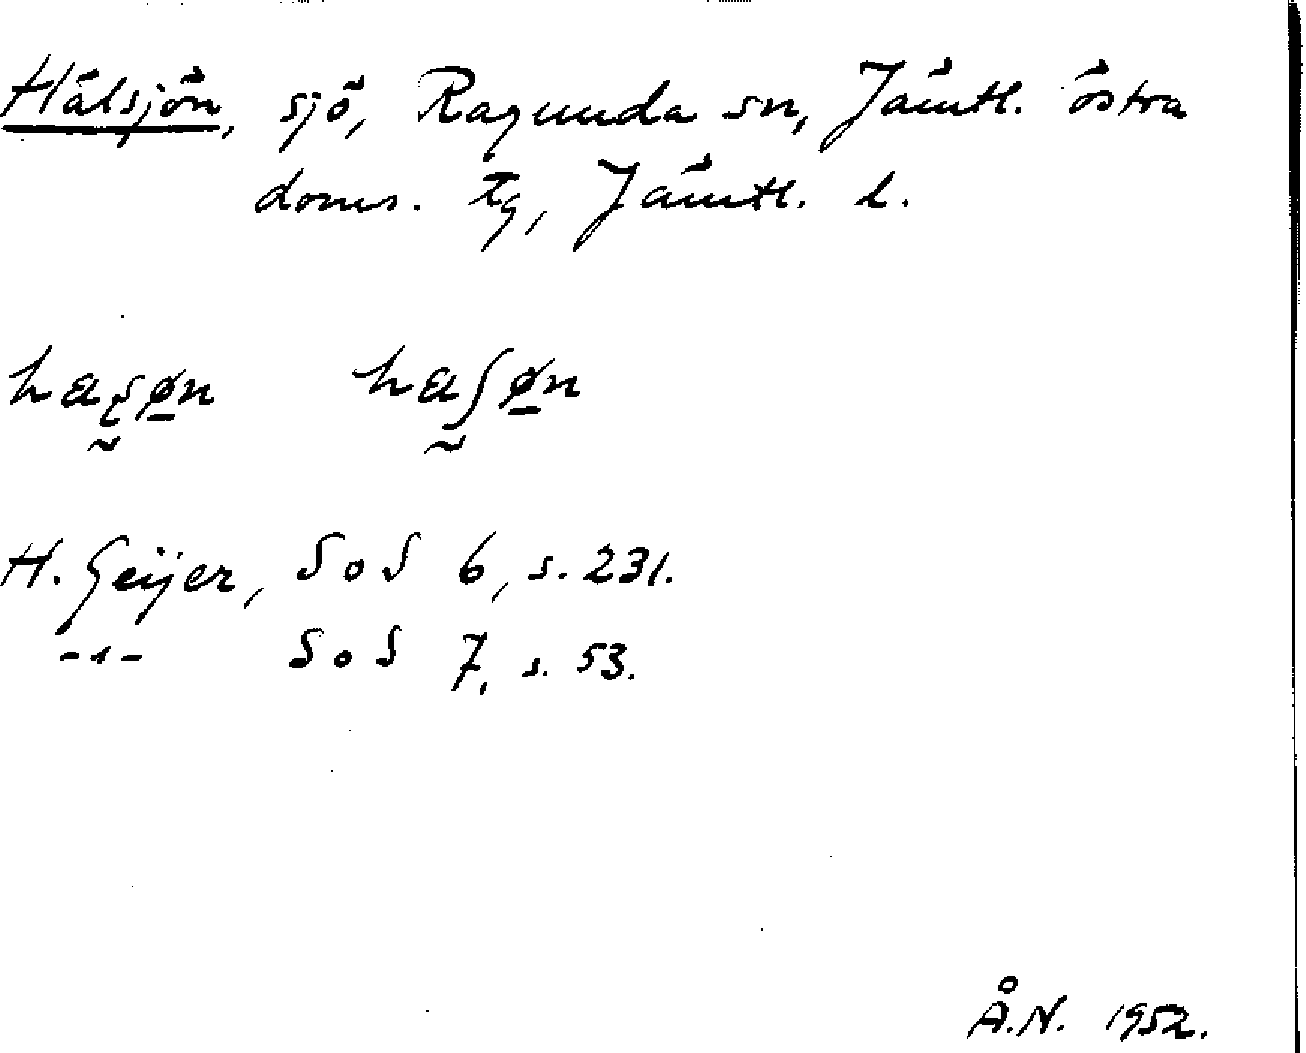 Hälsjön, sjö, Ragunda sn, Jämtl. östra
doms. tg, Jämtl. l.
H. Geijer, SoS 6, s. 231.
-"- SoS 7, s. 53.
Å.N. 1952.